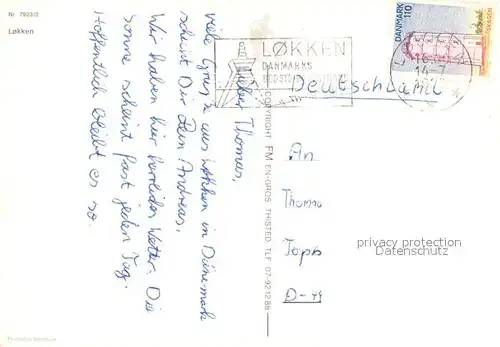 Nr. 7923/2
Løkken
DANMARK
110
SKAGEN
LØKKEN
DANMARKS
14-7
Deutschland
Lieber Thomas,
viele Grüsse aus Løkken in Dänemark
schickt Dir Dein Andreas.
Wir haben hier herrliches Wetter. Die
Sonne scheint fast jeden Tag.
Hoffentlich bleibt es so.
COPYRIGHT FM EN-GROS THISTED, TLF 07-9212 88
An
Thoma
D-
privacy protection
Verwendung